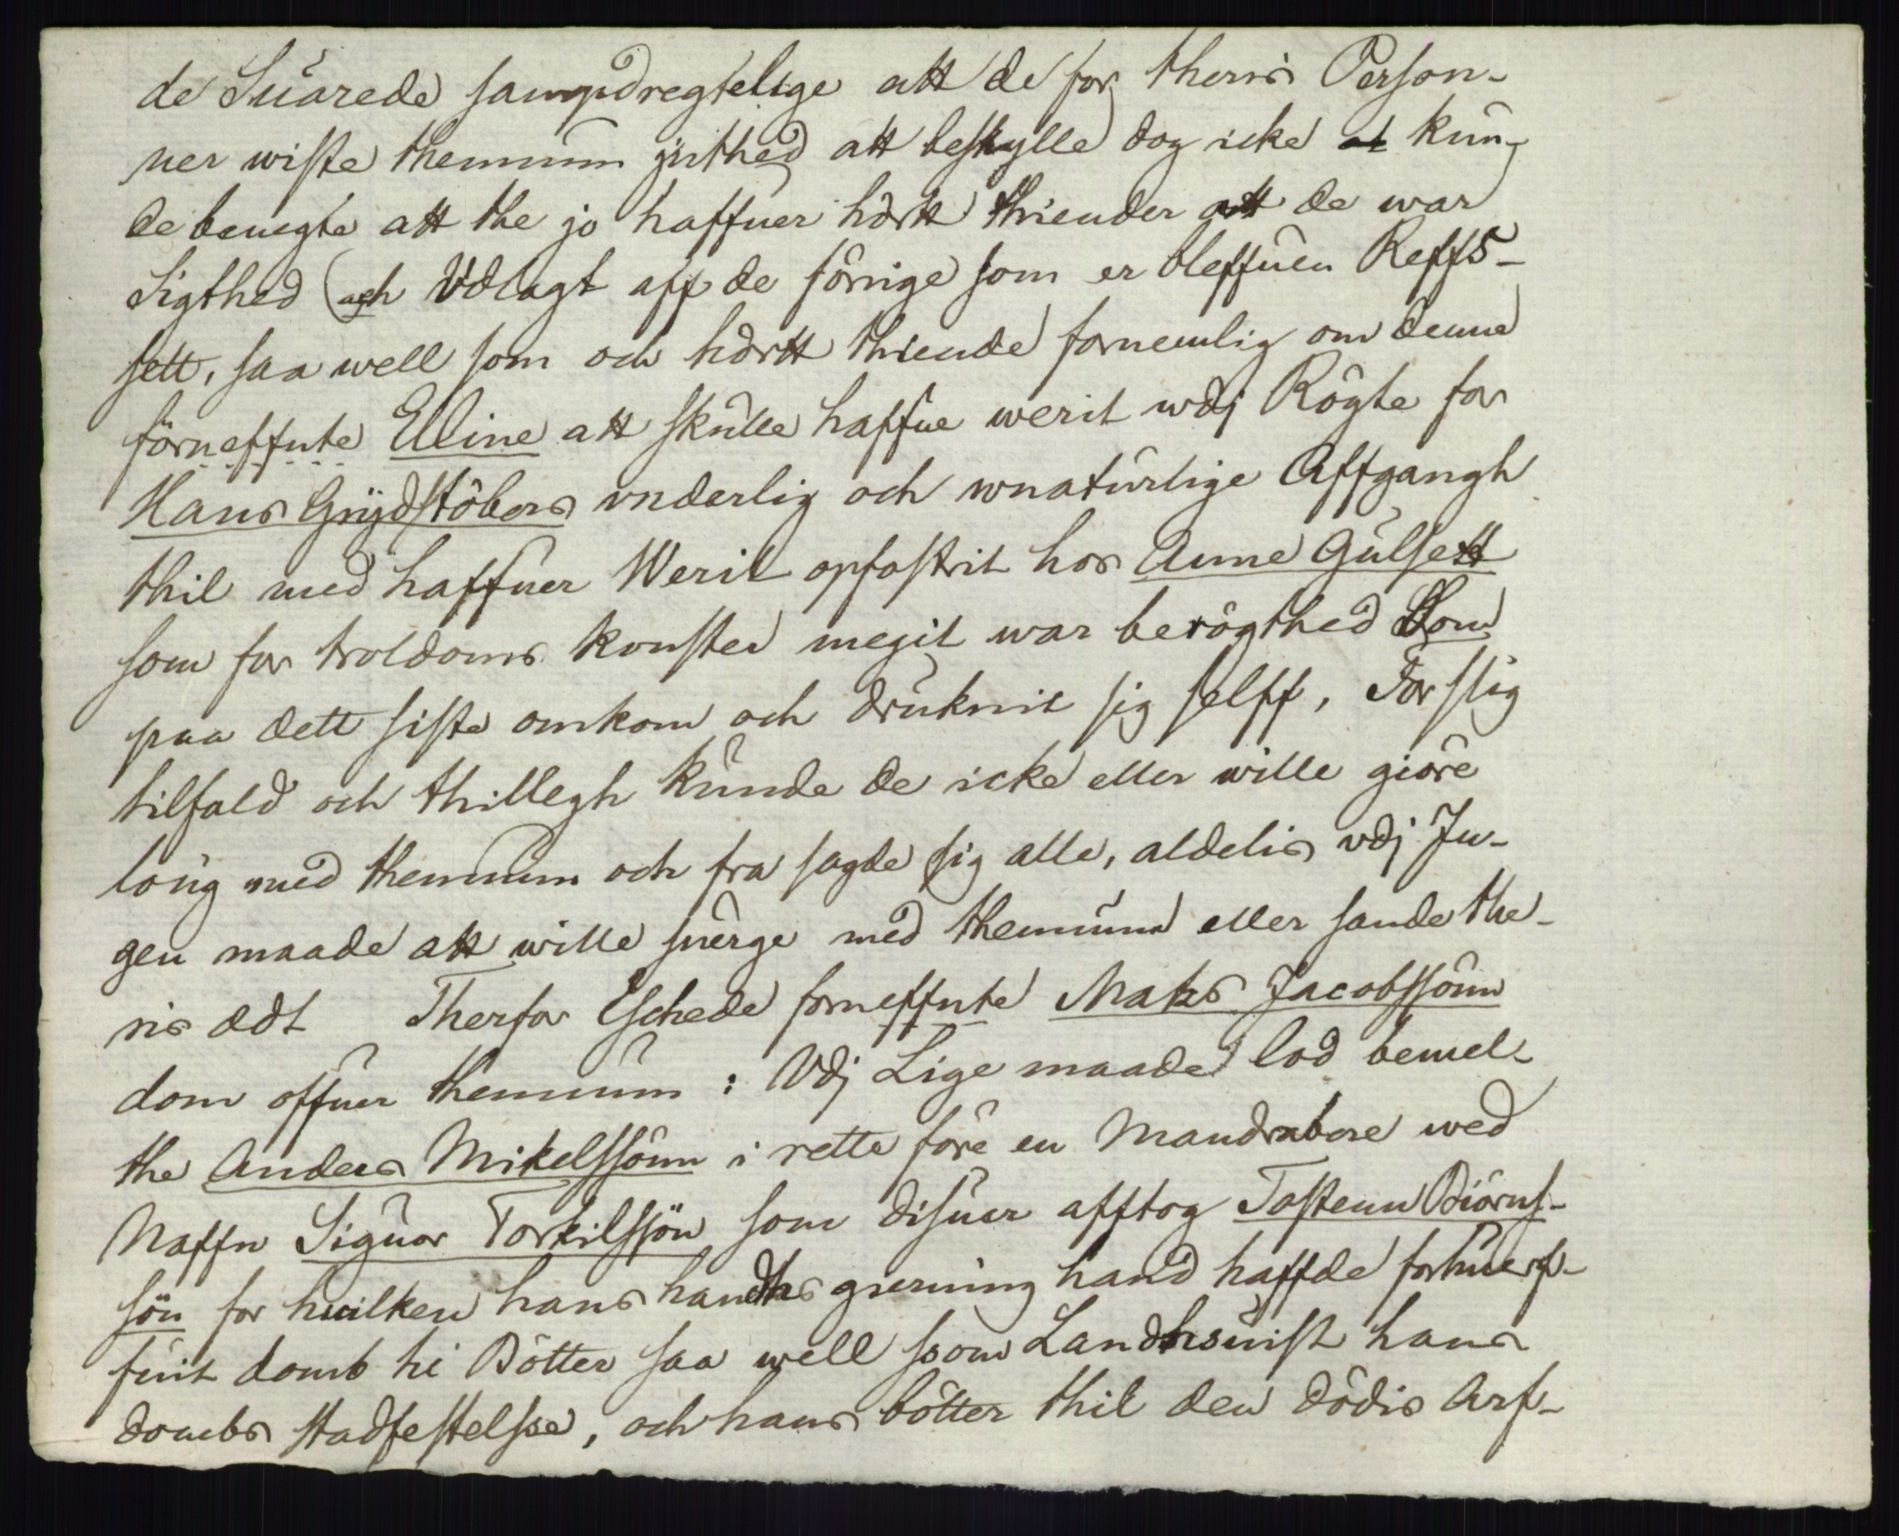 de Suarede sampdregtelige att de for theris Person-
ner wiste themmum jnthed att beskylle dog icke at kun-
de benegte att the jo haffuer hörtt thiender att de war
Sigthed och Vdlagt aff de förrige som er bleffuen Reffs-
sett, saa well som och hörtt thiende fornemlig om denne
förneffnte Elline att skulle haffue werit wdj Rögte for
Hans Grydstöbers vnderlig och wnaturlige Affgangh
thil med haffuer Werit opfostrit hos Anne Gulsett
som for troldoms konster megit war berögthed Som
paa dett siste omkom och druknit sig selff, For slig
tilfald och thillegh kunde de icke eller wille giöre
loug med themmum och fra sagde sig alle, aldelis vdj In-
gen maade att wille suerge med themmum eller sande the-
ris ædt Therfor Eschede forneffnte Mats Jacobssönn
dom offuer themmum: Vdj Lige maade lod bemel-
the Anders Mikelssönn i rette före en Mandrabere wed
Naffn Siguor Torkilssön som disuer afftog Tostenn Biörns-
sön for huilken hans handhs gierning hand haffde forhuerf-
fuit domb til Bötter saa well ssom Landhsuist hans
dombs stadfestelsse, och hans bötter thil den dödis Arf-